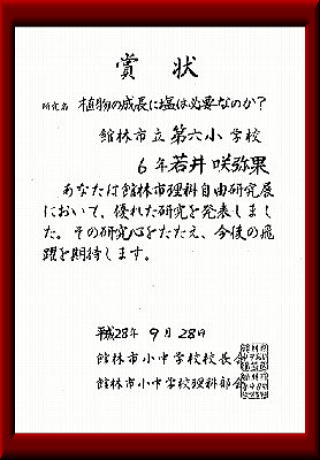 賞状
研究名 植物の成長に塩は必要なのか?
館林市立第六小学校
6年若井咲弥果
あなたは館林市理科自由研究展
において、優れた研究を発表しまし
た。その研究心をたたえ、今後の飛
躍を期待します。
平成28年9月28日
館林市小中学校校長会
館林市小中学校理科部会